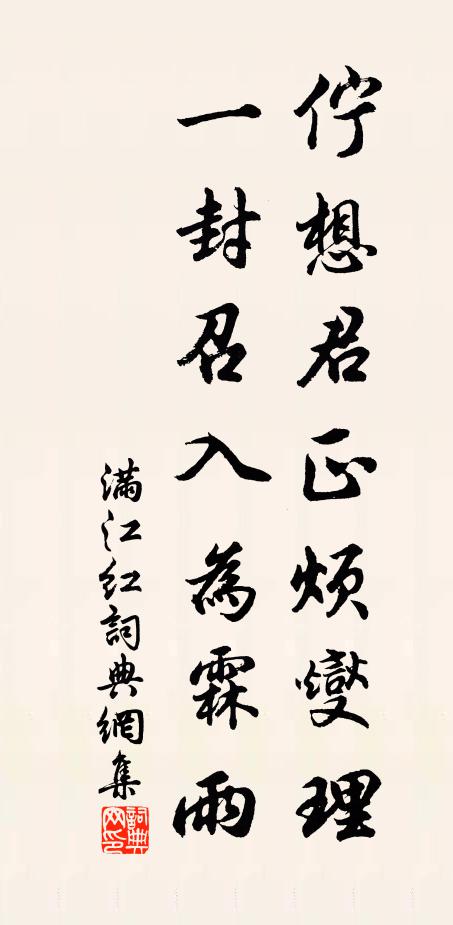 佇想君正煩燮理
一封召入為霖雨
滿江紅詞典網集
詞典網印